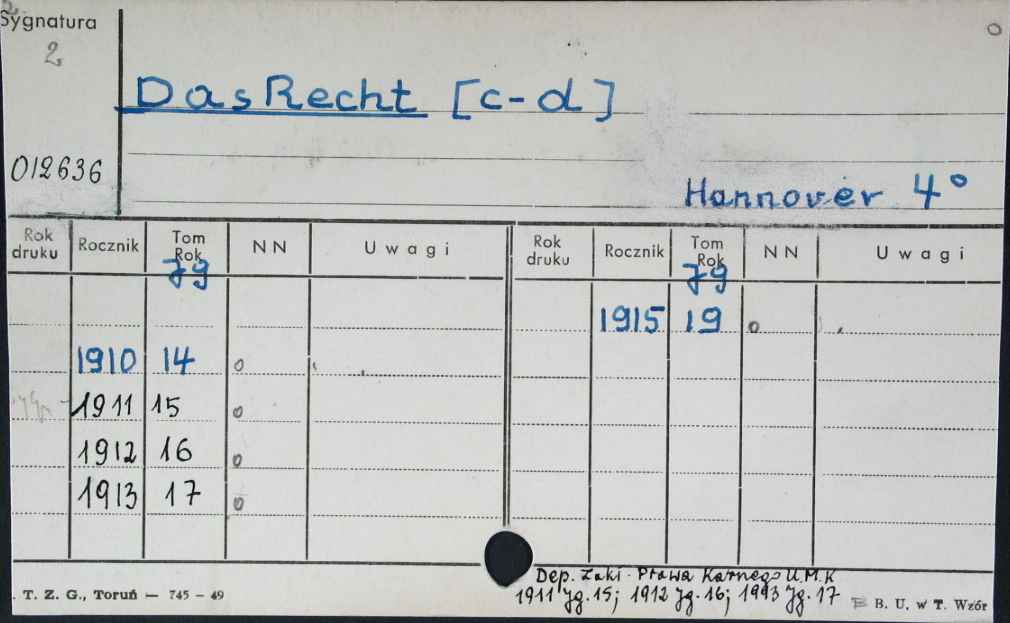 Sygnatura
2
Das Recht [c-d]
012636
Hannover 4°
Rok druku Rocznik Tom Rok NN Uwagi Rok druku Rocznik Tom Rok NN Uwagi
Jg Jg
1915 19 o
1910 14 o
1911 15 o
1912 16 o
1913 17 o
Dep. Zakł. Prawa Karnego U.M.K
1911 Jg. 15; 1912 Jg. 16; 1913 Jg. 17
T. Z. G., Toruń — 745 – 49 B. U. w T. Wzór